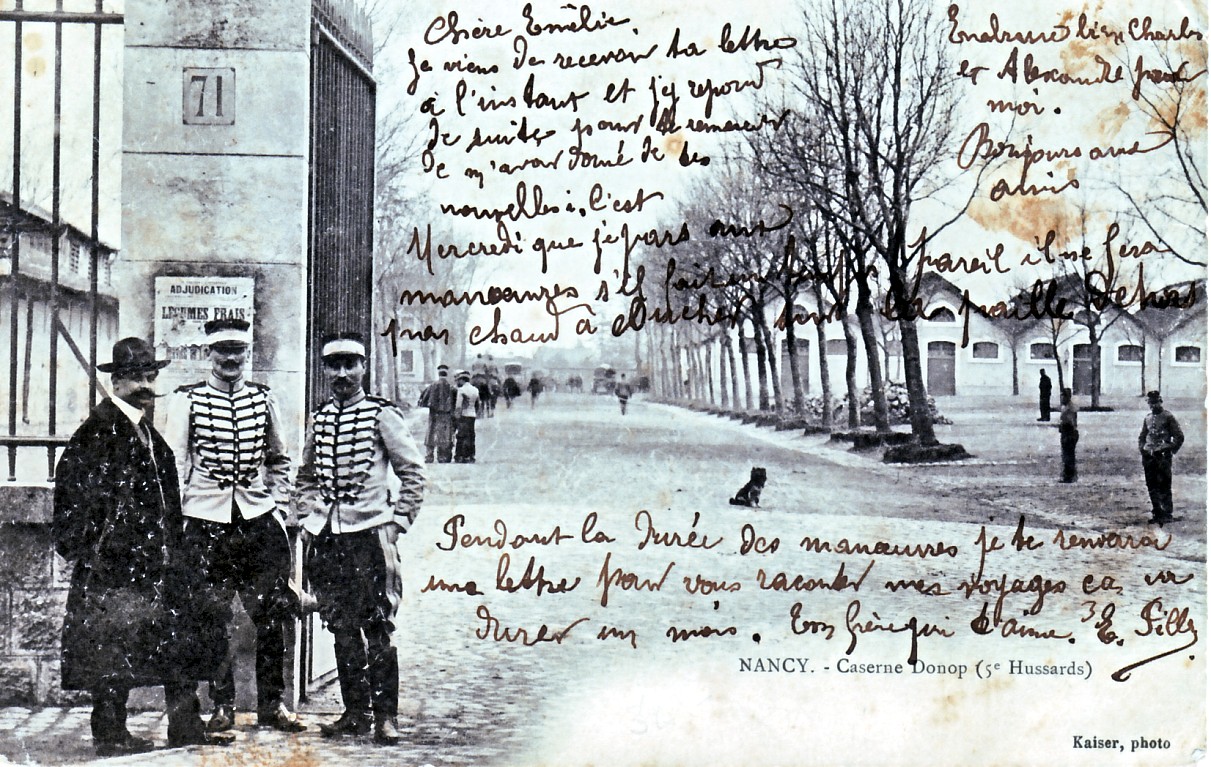 Chère Emélie
Je viens de recevoir ta lettre
à l'instant et j'y repond
de suite pour te remercier
de m'avoir donné de tes
nouvelles, C'est
Mercredi que je pars aux
manoeuvres s'il fait un temps pareil il ne fera
pas chaud à coucher sur la paille dehors
Endrasse bien Charles
et Alexandre pour
moi.
Bonjours aux
amis
Pendant la durée des manœuvres je te renverai
une lettre pour vous raconter mes voyages ca va
durer un mois. Ton frère qui t'aime. E. Filly
71
ADJUDICATION
LEGUMES FRAIS
NANCY. - Caserne Donop (5e Hussards)
Kaiser, photo